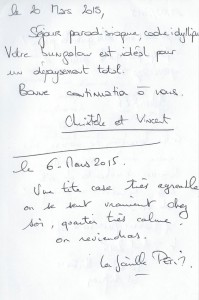 le 20 Mars 2015,
Séjour paradisiaque, cadre idylliqu
Votre bungalow est idéal pour
un dépaysement total.
Bonne continuation à vous.
Christèle et Vincent
le 6. Mars 2015.
Une tite case très agréable
on se sent vraiment chez
soi, quartier très calme.
on reviendras.
la famille